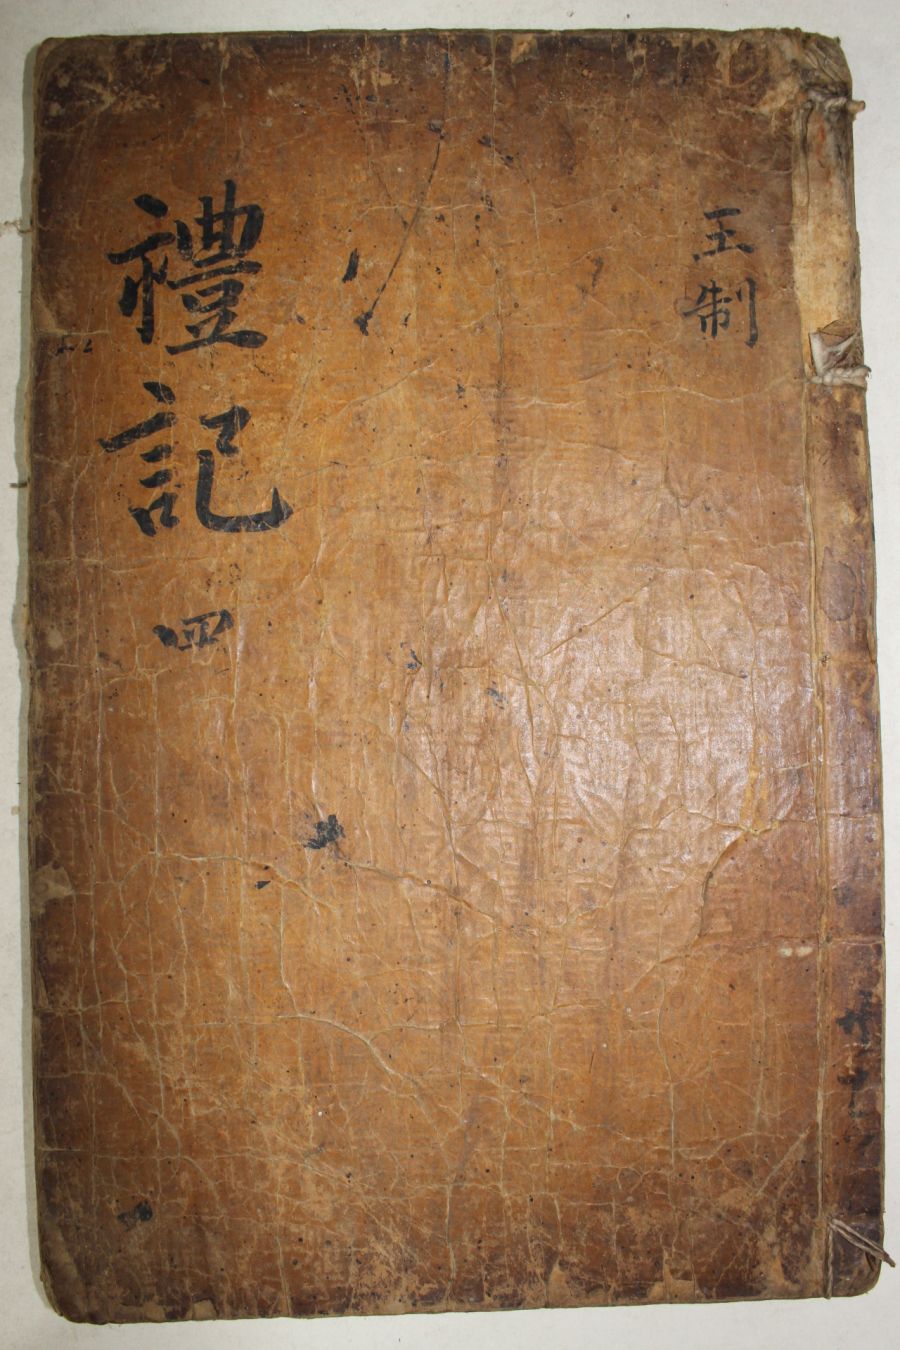 王制
禮記 四